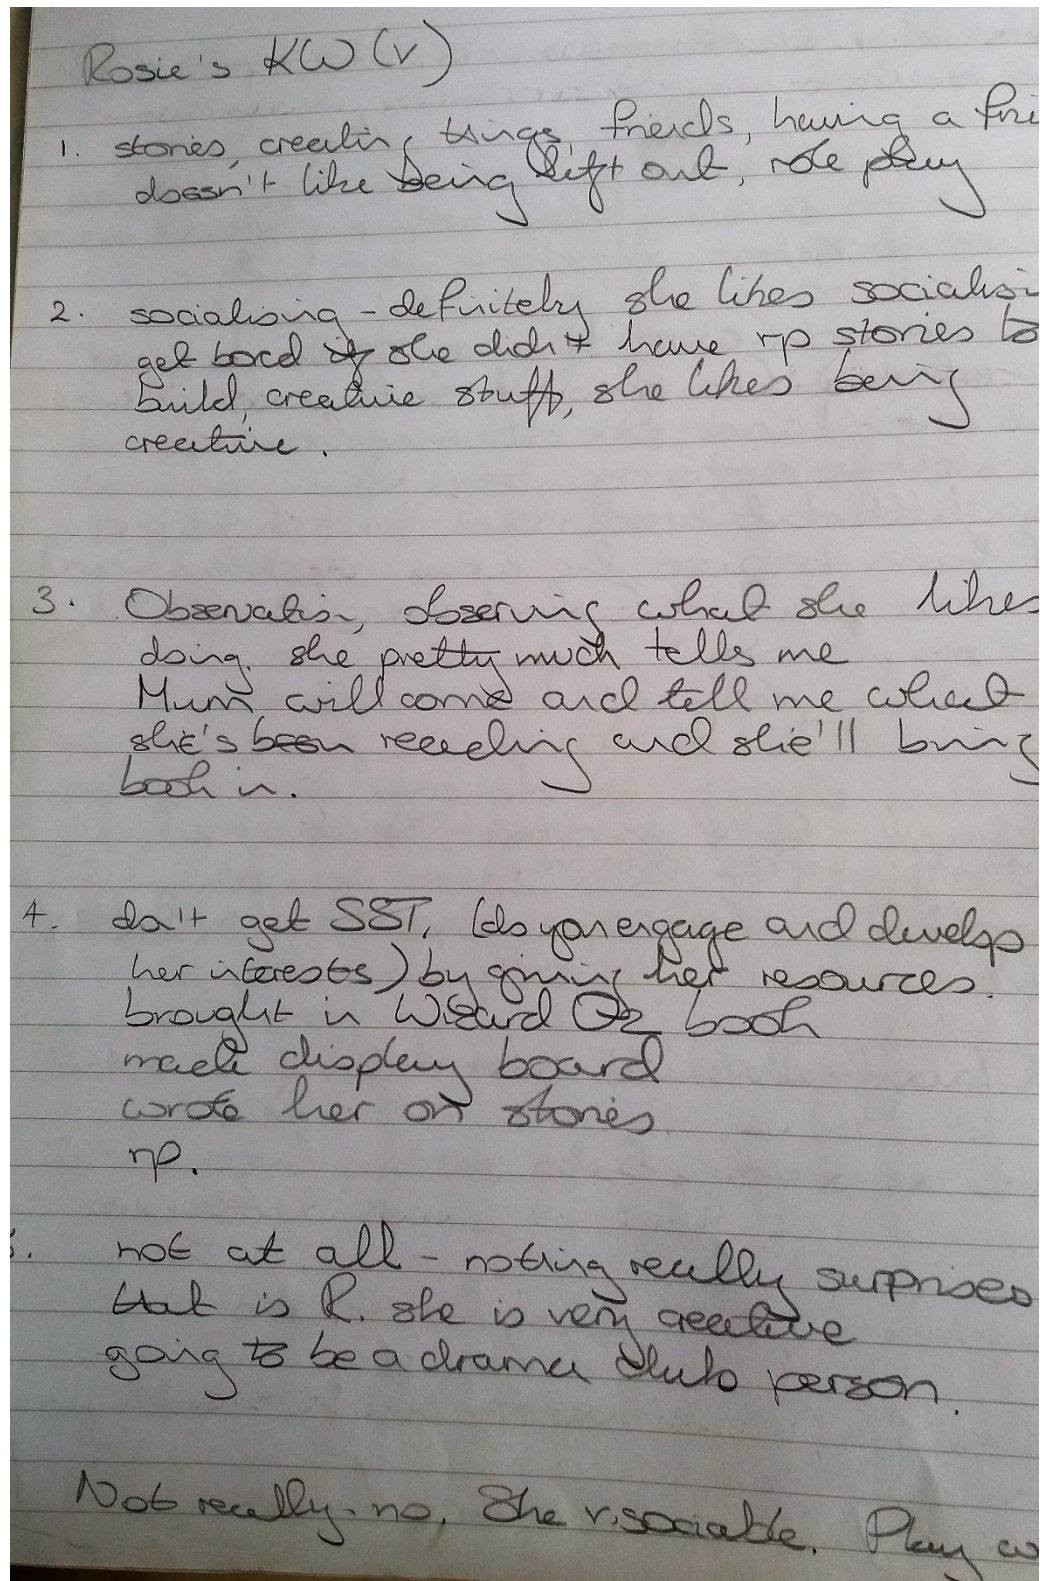 Rosie's KW (v)
1. stories, creating things, friends, having a frie
doesn't like being left out, role play
2. socialising - definitely she likes socialisi
get bored if she didn't have rp stories to
build, creative stuff, she likes being
creative.
3. Observation, observing what she likes
doing. she pretty much tells me
Mum will come and tell me what
she's been reading and she'll bring
book in.
4. don't get SST, (do you engage and develop
her interests) by giving her resources.
brought in Wizard Oz book
made display board
wrote her on stories
rp.
. not at all - nothing really surprises
that is R. she is very creative
going to be a drama club person.
Not really - no. She v. sociable. Play w